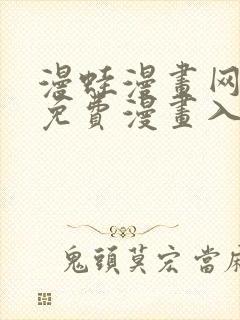 漫蛙漫畫网
免費漫畫入
鬼頭莫宏當麻